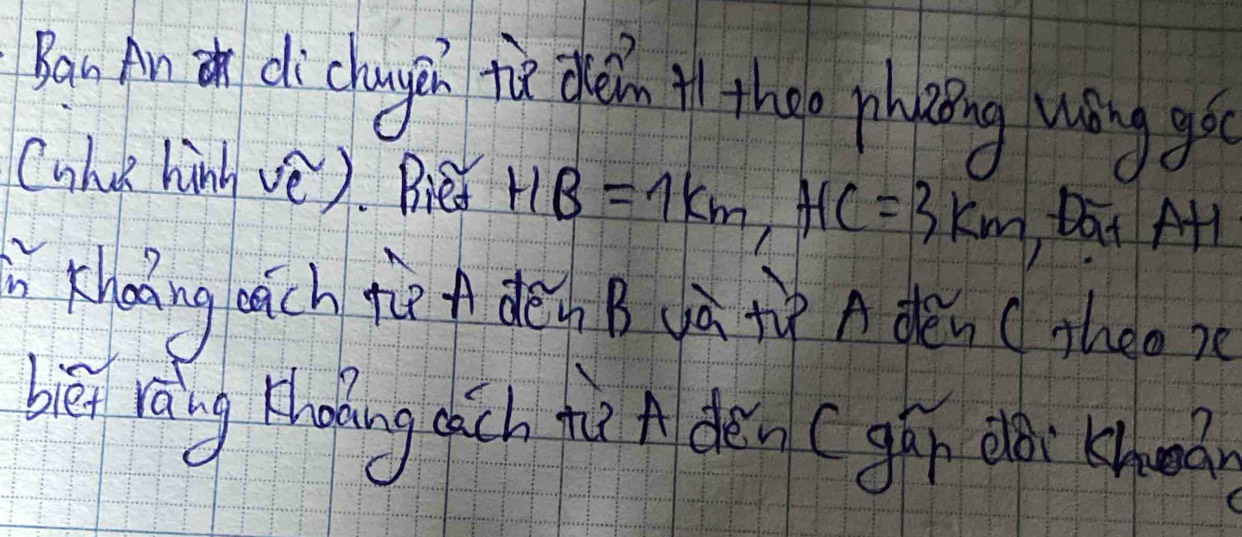 Bạn An di chuyển từ điểm H theo phương vuông góc
(như hình vẽ). Biết HB = 1km, HC = 3km, Đặt AH
n khoảng cách từ A đến B và từ A đến C theo x
biết rằng khoảng cách từ A đến C gấp đôi khoản